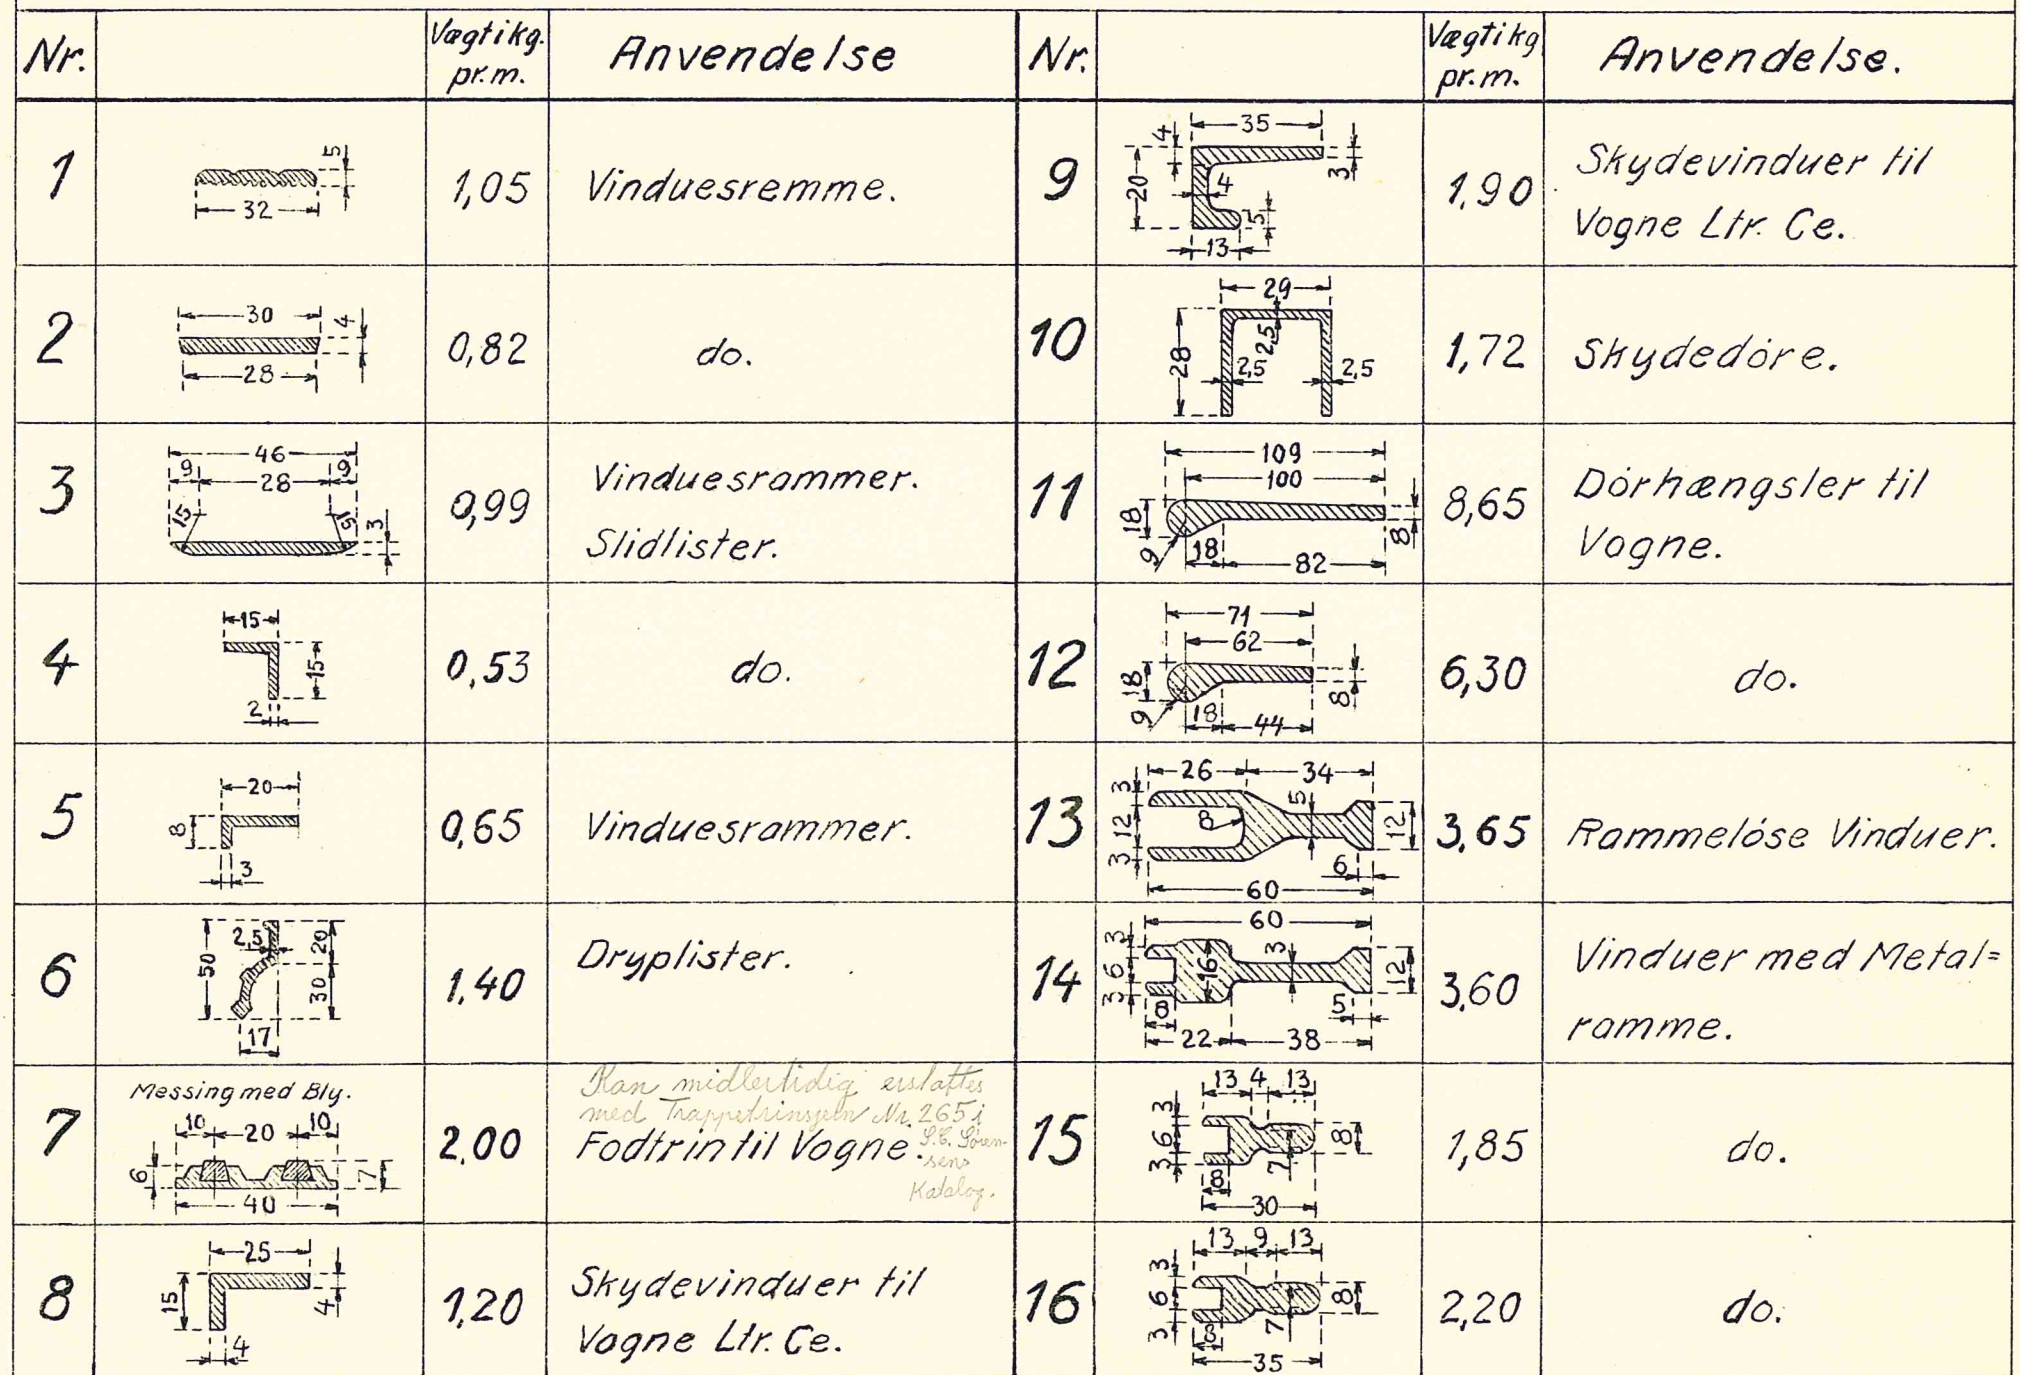 Nr.
Vægt i kg. pr. m.
Anvendelse
Nr.
Vægt i kg pr. m.
Anvendelse.
1
5
32
1,05
Vinduesremme.
2
30
4
28
0,82
do.
3
46
9
28
9
15
15
3
0,99
Vinduesrammer.
Slidlister.
4
15
15
2
0,53
do.
5
20
8
3
0,65
Vinduesrammer.
6
50
2,5
20
30
17
1,40
Dryplister.
7
Messing med Bly.
10
20
10
6
7
40
2,00
Kan midlertidig erstattes
med Trappetrinsjern Nr. 265 i
Fodtrin til Vogne.
S.C. Søren-
sens
Katalog.
8
25
15
4
4
1,20
Skydevinduer til
Vogne Ltr. Ce.
9
35
4
20
4
3
5
13
1,90
Skydevinduer til
Vogne Ltr. Ce.
10
29
28
2,5
2,5
2,5
1,72
Skydedöre.
11
109
100
18
9
18
82
8
8,65
Dörhængsler til
Vogne.
12
71
62
18
9
18
44
8
6,30
do.
13
26
34
3
12
3
8
5
12
6
60
3,65
Rammelöse Vinduer.
14
60
3
6
3
16
3
12
8
5
22
38
3,60
Vinduer med Metal=
ramme.
15
13
4
13
3
6
3
8
8
7
30
1,85
do.
16
13
9
13
3
6
3
8
8
7
35
2,20
do.